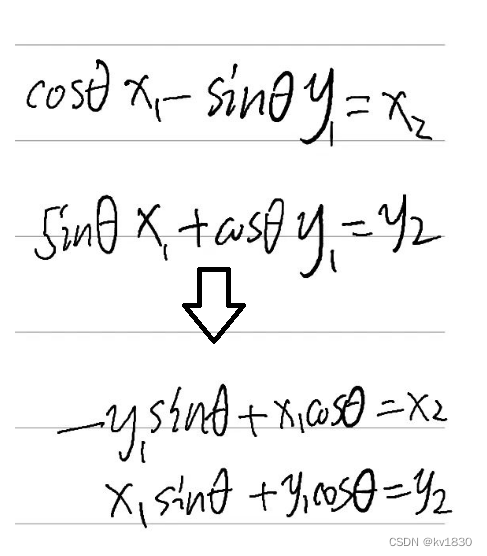 cosθ x₁ - sinθ y₁ = x₂
sinθ x₁ + cosθ y₁ = y₂
-y₁sinθ + x₁cosθ = x₂
x₁sinθ + y₁cosθ = y₂
CSDN @kv1830